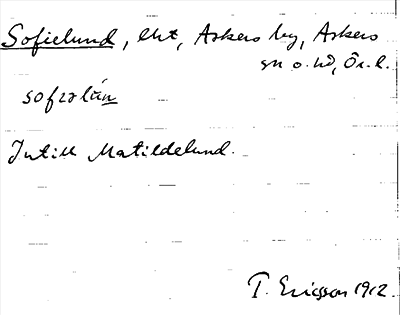 Sofielund, lht, Askers by, Askers
sn o. hd, Ör. l.
sofɜlún
Intill Matildelund.
T. Ericsson 1912.